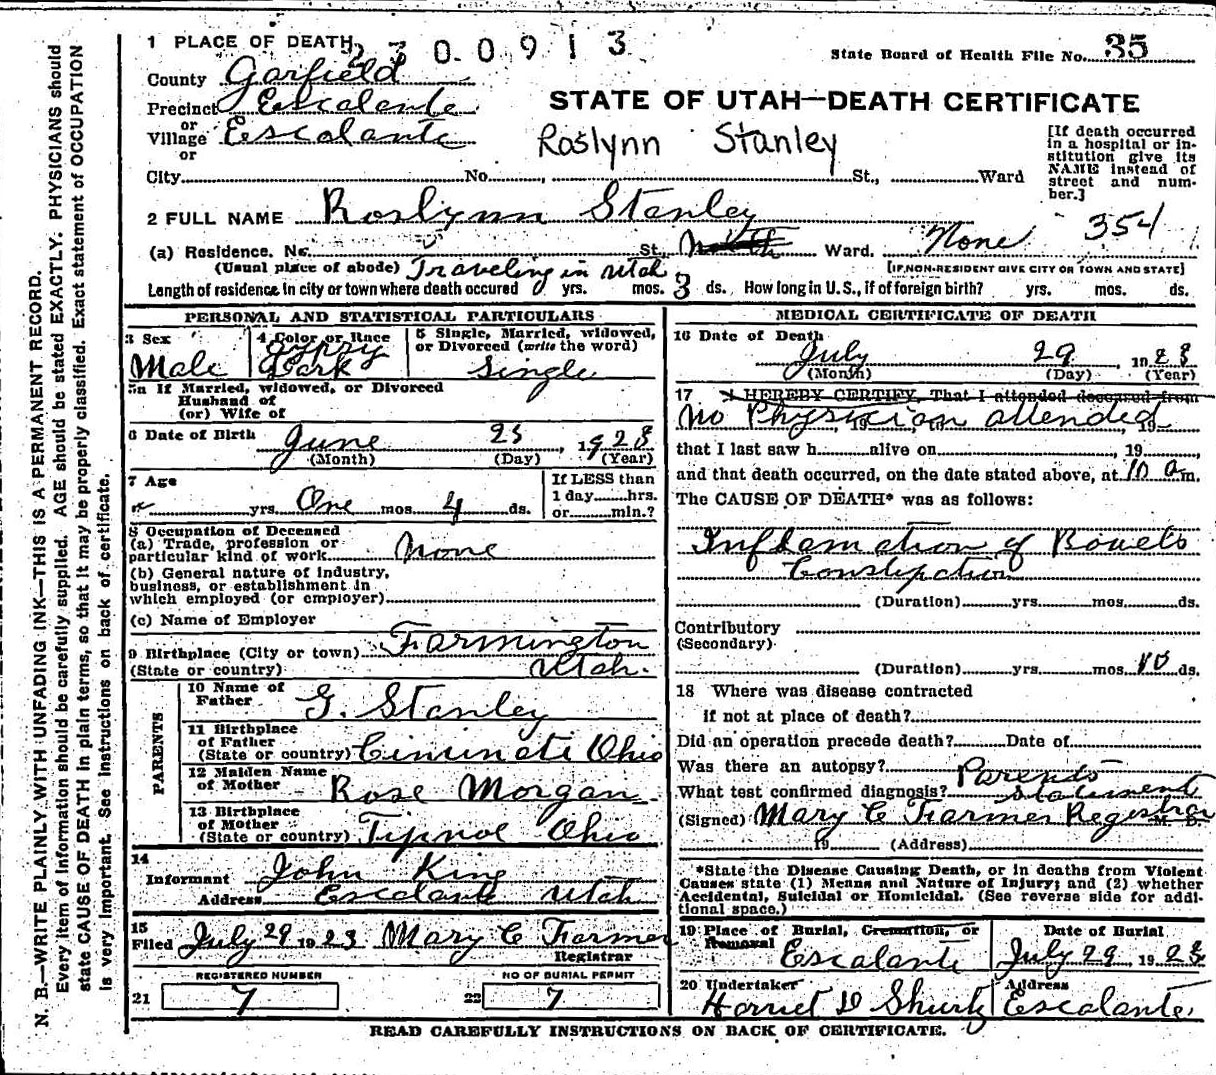 1 PLACE OF DEATH
2300913
State Board of Health File No. 35
County Garfield
Precinct Escalante
or
Village Escalante
or
STATE OF UTAH—DEATH CERTIFICATE
Roslynn Stanley
City No. St., Ward
[If death occurred
in a hospital or in-
stitution give its
NAME instead of
street and num-
ber.]
2 FULL NAME Roslynn Stanley
354
(a) Residence. No. St. Ward. None
(Usual place of abode) Traveling in Utah
[IF NON-RESIDENT GIVE CITY OR TOWN AND STATE]
Length of residence in city or town where death occured yrs. mos. 3 ds. How long in U.S., if of foreign birth? yrs. mos. ds.
PERSONAL AND STATISTICAL PARTICULARS
3 Sex
Male
4 Color or Race
Gypsy
Dark
5 Single, Married, widowed,
or Divorced (write the word)
Single
5a If Married, widowed, or Divorced
Husband of
(or) Wife of
6 Date of Birth June 25, 1923
(Month) (Day) (Year)
7 Age
yrs. One mos. 4 ds.
If LESS than
1 day hrs.
or min.?
8 Occupation of Deceased
(a) Trade, profession or
particular kind of work None
(b) General nature of industry,
business, or establishment in
which employed (or employer)
(c) Name of Employer
9 Birthplace (City or town) Farmington
(State or country) Utah.
PARENTS
10 Name of
Father G. Stanley
11 Birthplace
of Father
(State or country) Cinninati Ohio
12 Maiden Name
of Mother Rose Morgan
13 Birthplace
of Mother
(State or country) Ohio
14
Informant John King
Address Escalante Utah
15
Filed July 29 1923 Mary C Farmer
Registrar
REGISTERED NUMBER
21 7
NO OF BURIAL PERMIT
22 7
MEDICAL CERTIFICATE OF DEATH
16 Date of Death
July 29 1923
(Month) (Day) (Year)
17 I HEREBY CERTIFY, That I attended deceased from
No Physician attended
that I last saw h alive on , 19 ,
and that death occurred, on the date stated above, at 10 a.m.
The CAUSE OF DEATH* was as follows:
Inflamation of Bowels
Constipation
(Duration) yrs. mos. ds.
Contributory
(Secondary)
(Duration) yrs. mos. 10 ds.
18 Where was disease contracted
if not at place of death?
Did an operation precede death? Date of
Was there an autopsy?
What test confirmed diagnosis? Parents statement
(Signed) Mary C Farmer Registrar M. D.
19 (Address)
*State the Disease Causing Death, or in deaths from Violent
Causes state (1) Means and Nature of Injury; and (2) whether
Accidental, Suicidal or Homicidal. (See reverse side for addi-
tional space.)
19 Place of Burial, Cremation, or
Removal
Escalante
Date of Burial
July 29, 1923
20 Undertaker
Address
Escalante.
READ CAREFULLY INSTRUCTIONS ON BACK OF CERTIFICATE.
N. B.—WRITE PLAINLY WITH UNFADING INK—THIS IS A PERMANENT RECORD.
Every item of information should be carefully supplied. AGE should be stated EXACTLY. PHYSICIANS should
state CAUSE OF DEATH in plain terms, so that it may be properly classified. Exact statement of OCCUPATION
is very important. See instructions on back of certificate.